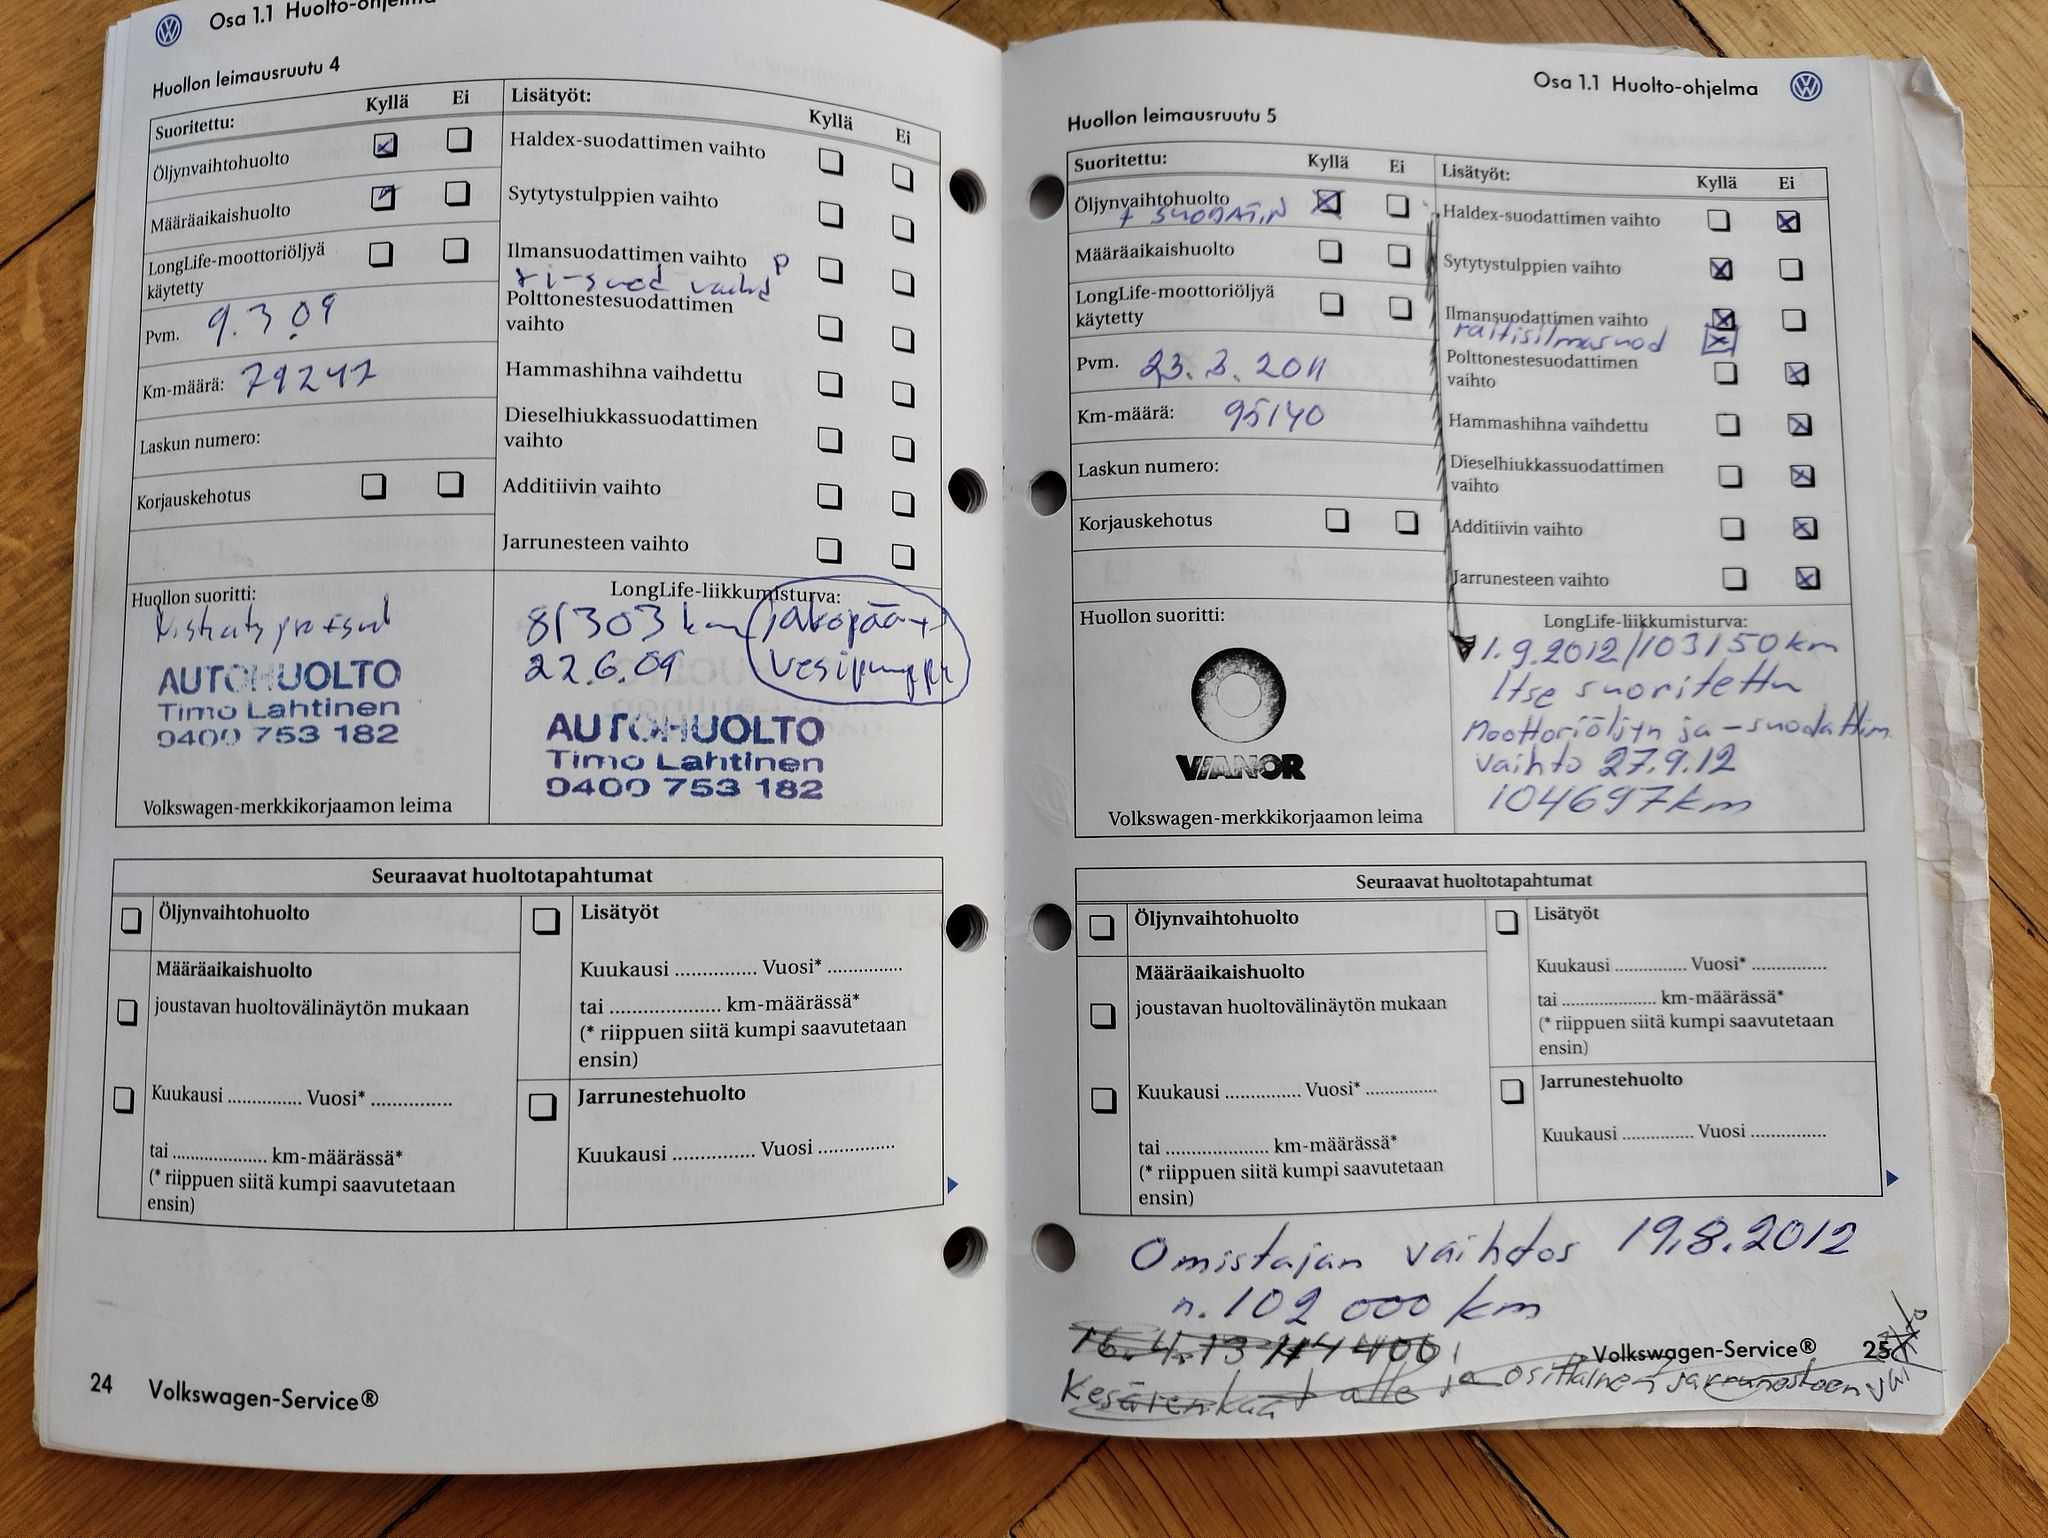 Osa 1.1 Huolto-ohjelma
Huollon leimausruutu 4
Suoritettu: Kyllä Ei
Öljynvaihtohuolto
Määräaikaishuolto
LongLife-moottoriöljyä
käytetty
Pvm. 9.3.09
Km-määrä: 79247
Laskun numero:
Korjauskehotus
Lisätyöt: Kyllä Ei
Haldex-suodattimen vaihto
Sytytystulppien vaihto
Ilmansuodattimen vaihto P
Polttonestesuodattimen
vaihto
Hammashihna vaihdettu
Dieselhiukkassuodattimen
vaihto
Additiivin vaihto
Jarrunesteen vaihto
Huollon suoritti:
AUTOHUOLTO
Timo Lahtinen
0400 753 182
Volkswagen-merkkikorjaamon leima
LongLife-liikkumisturva:
81303 km jakopää +
22.6.09 vesipumppu
AUTOHUOLTO
Timo Lahtinen
0400 753 182
Seuraavat huoltotapahtumat
Öljynvaihtohuolto
Määräaikaishuolto
joustavan huoltovälinäytön mukaan
Kuukausi ............... Vuosi* ................
tai ..................... km-määrässä*
(* riippuen siitä kumpi saavutetaan
ensin)
Lisätyöt
Kuukausi ............... Vuosi* ..............
tai ..................... km-määrässä*
(* riippuen siitä kumpi saavutetaan
ensin)
Jarrunestehuolto
Kuukausi ............... Vuosi ..............
24 Volkswagen-Service®
Osa 1.1 Huolto-ohjelma
Huollon leimausruutu 5
Suoritettu: Kyllä Ei
Öljynvaihtohuolto
+ SUODATIN
Määräaikaishuolto
LongLife-moottoriöljyä
käytetty
Pvm. 23.3.2011
Km-määrä: 95140
Laskun numero:
Korjauskehotus
Lisätyöt: Kyllä Ei
Haldex-suodattimen vaihto
Sytytystulppien vaihto
Ilmansuodattimen vaihto
raitisilmasuod
Polttonestesuodattimen
vaihto
Hammashihna vaihdettu
Dieselhiukkassuodattimen
vaihto
Additiivin vaihto
Jarrunesteen vaihto
Huollon suoritti:
VIANOR
Volkswagen-merkkikorjaamon leima
LongLife-liikkumisturva:
1.9.2012/103150km
Itse suoritettu
Moottoriöljyn ja -suodattim.
vaihto 27.9.12
104697km
Seuraavat huoltotapahtumat
Öljynvaihtohuolto
Määräaikaishuolto
joustavan huoltovälinäytön mukaan
Kuukausi ............... Vuosi* ..............
tai ..................... km-määrässä*
(* riippuen siitä kumpi saavutetaan
ensin)
Lisätyöt
Kuukausi ............... Vuosi* ...............
tai ..................... km-määrässä*
(* riippuen siitä kumpi saavutetaan
ensin)
Jarrunestehuolto
Kuukausi ............... Vuosi ...............
Omistajan vaihdos 19.8.2012
n. 102 000 km
16.4.13 114400
Volkswagen-Service® 25
Kesärenkaat alle ja osittainen jarrunesteen vaihto